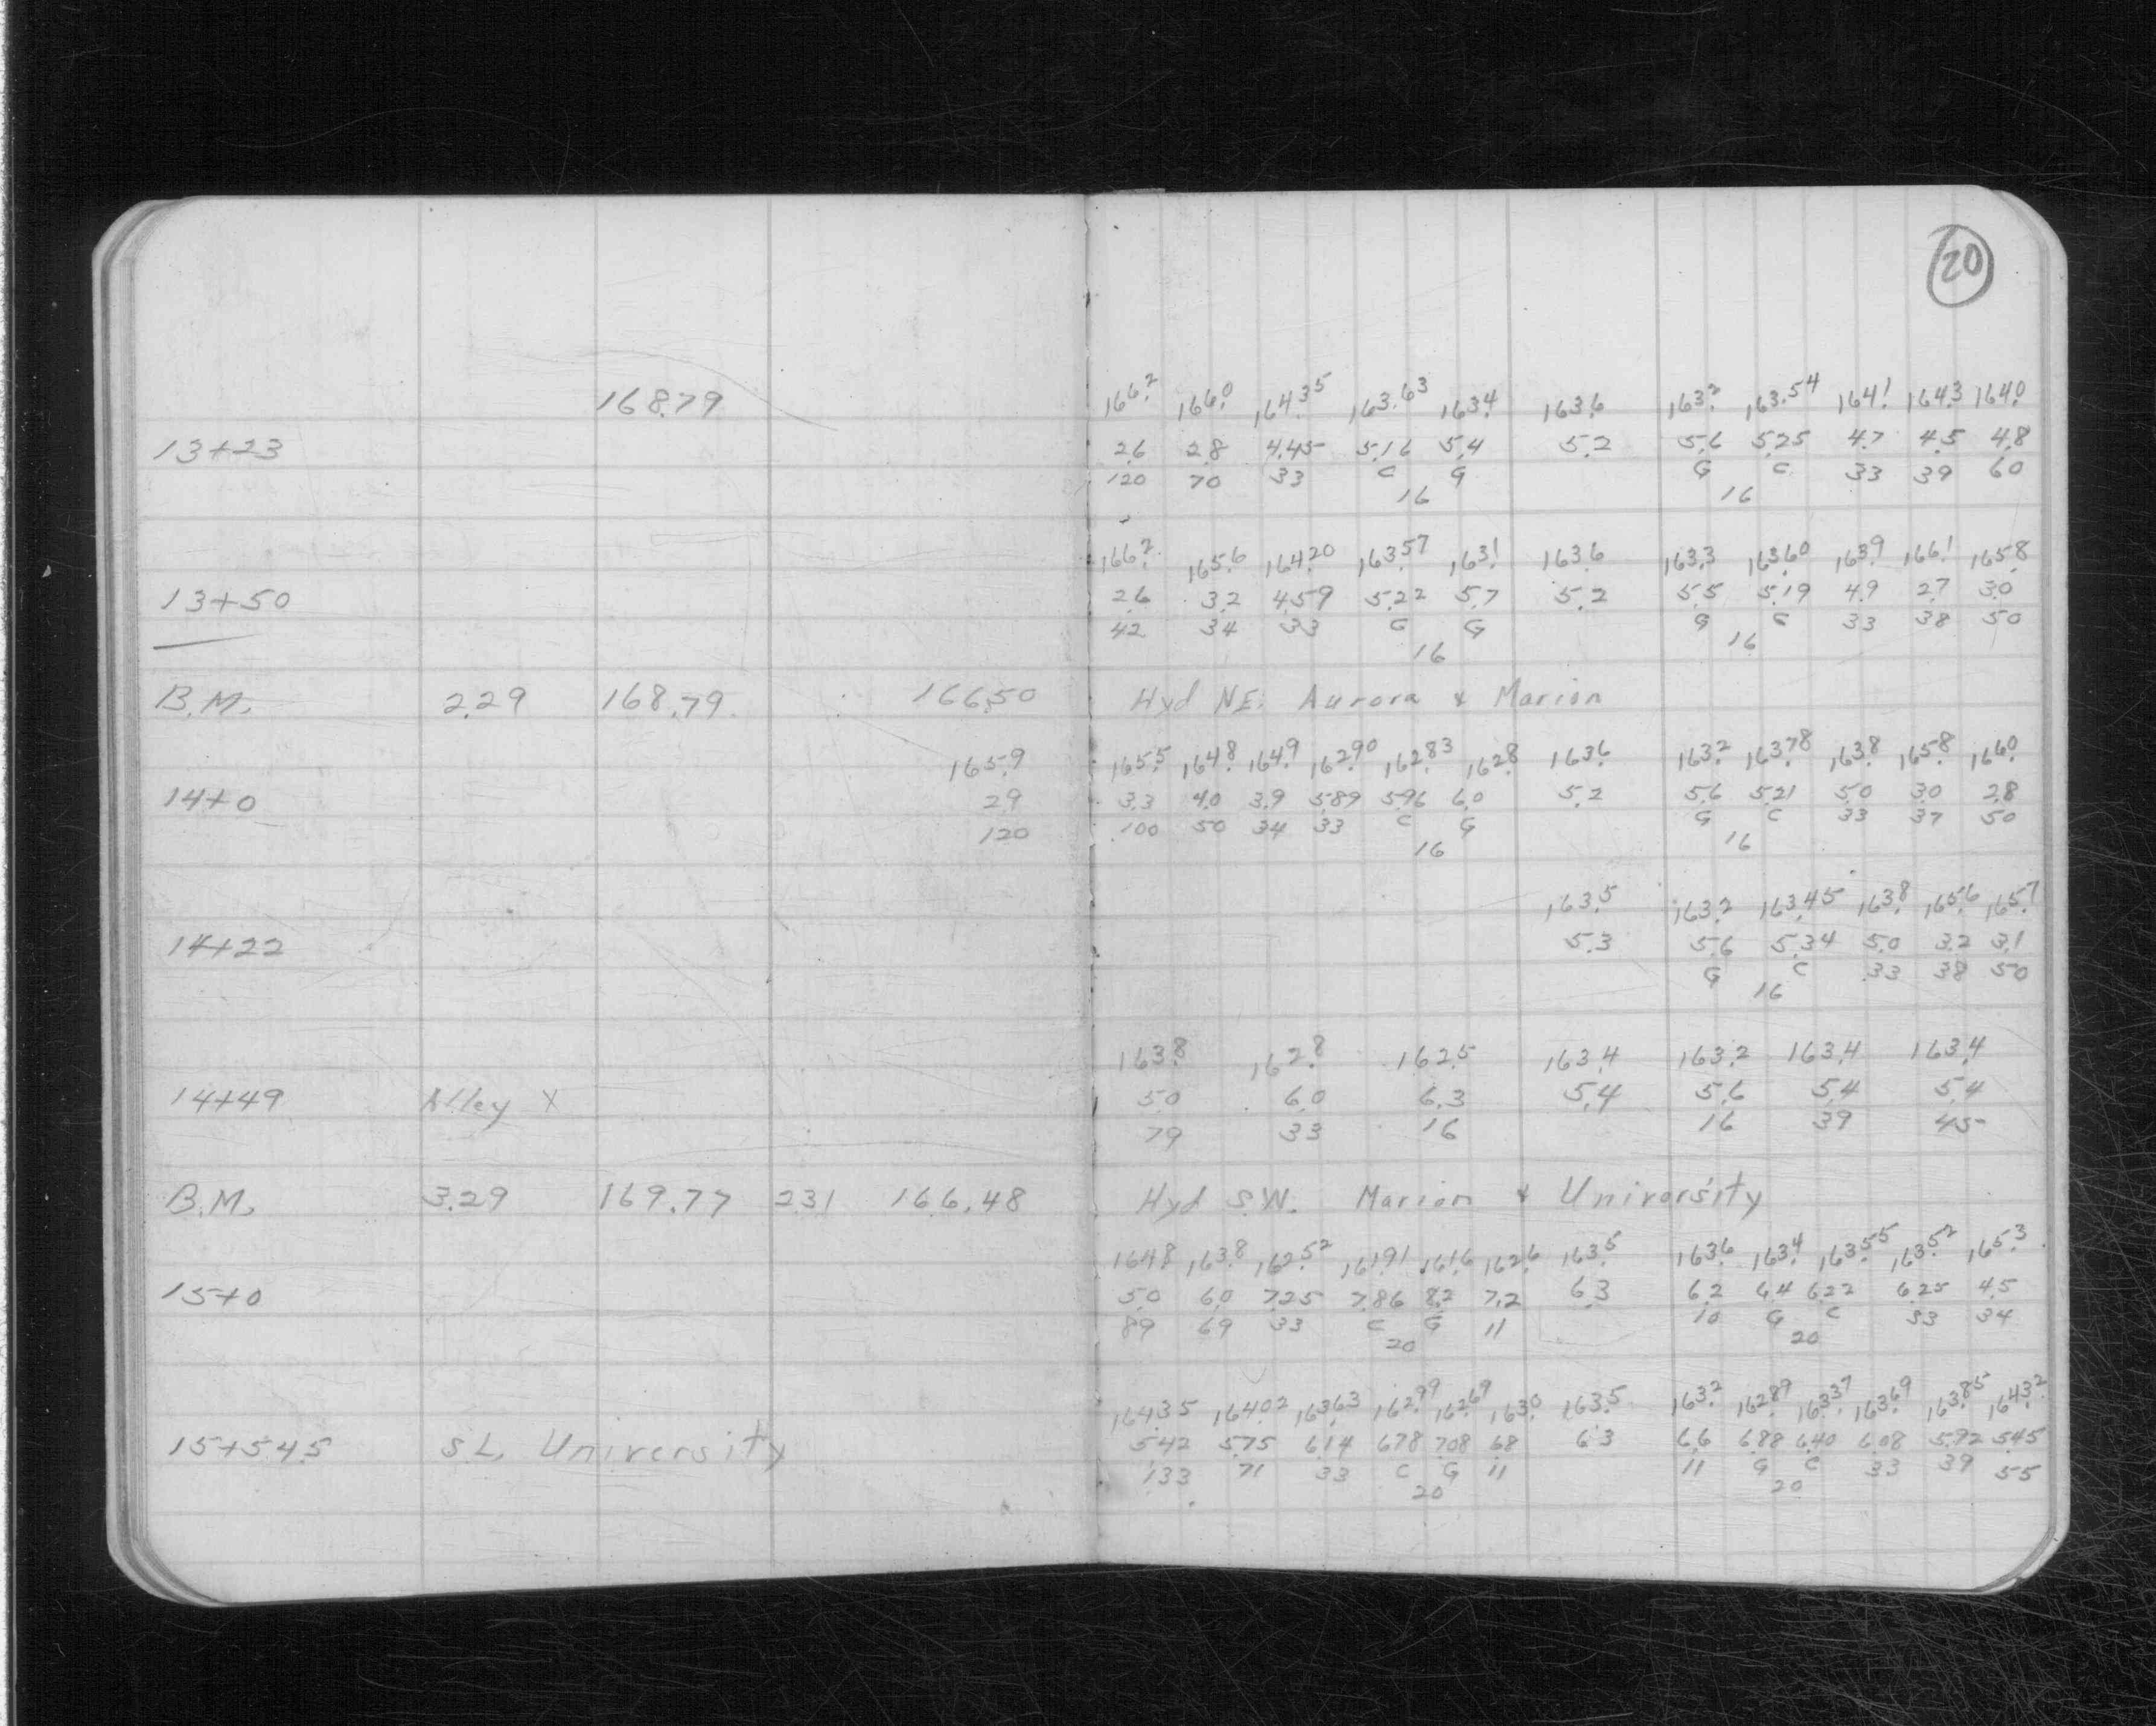 20
168.79 166.2 166.0 164.35 163.63 163.4 163.6 163.2 163.54 164.1 164.3 164.0
13+23 2.6 2.8 4.45 5.16 5.4 5.2 5.6 5.25 4.7 4.5 4.8
120 70 33 C G G C 33 39 60
16 16
166.2 165.6 164.20 163.57 163.1 163.6 163.3 163.60 163.9 166.1 165.8
13+50 2.6 3.2 4.59 5.22 5.7 5.2 5.5 5.19 4.9 2.7 3.0
42 34 33 C G G C 33 38 50
16 16
B.M. 2.29 168.79 166.50 Hyd NE. Aurora & Marion
165.9 165.5 164.8 164.9 162.90 162.83 162.8 163.6 163.2 163.78 163.8 165.8 166.0
14+0 2.9 3.3 4.0 3.9 5.89 5.96 6.0 5.2 5.6 5.21 5.0 3.0 2.8
120 100 50 34 33 C G G C 33 37 50
16 16
163.5 163.2 163.45 163.8 165.6 165.7
14+22 5.3 5.6 5.34 5.0 3.2 3.1
G C 33 38 50
16
163.8 162.8 162.5 163.4 163.2 163.4 163.4
14+49 Alley X 5.0 6.0 6.3 5.4 5.6 5.4 5.4
79 33 16 16 39 45
B.M. 3.29 169.77 2.31 166.48 Hyd S.W. Marion & University
164.8 163.8 162.52 161.91 161.6 162.6 163.5 163.6 163.4 163.55 163.52 165.3
15+0 5.0 6.0 7.25 7.86 8.2 7.2 6.3 6.2 6.4 6.22 6.25 4.5
89 69 33 C G 11 10 G C 33 34
20 20
164.35 164.02 163.63 162.99 162.69 163.0 163.5 163.2 162.89 163.37 163.69 163.85 164.32
15+54.5 S.L. University 5.42 5.75 6.14 6.78 7.08 6.8 6.3 6.6 6.88 6.40 6.08 5.92 5.45
133 71 33 C G 11 11 G C 33 39 55
20 20